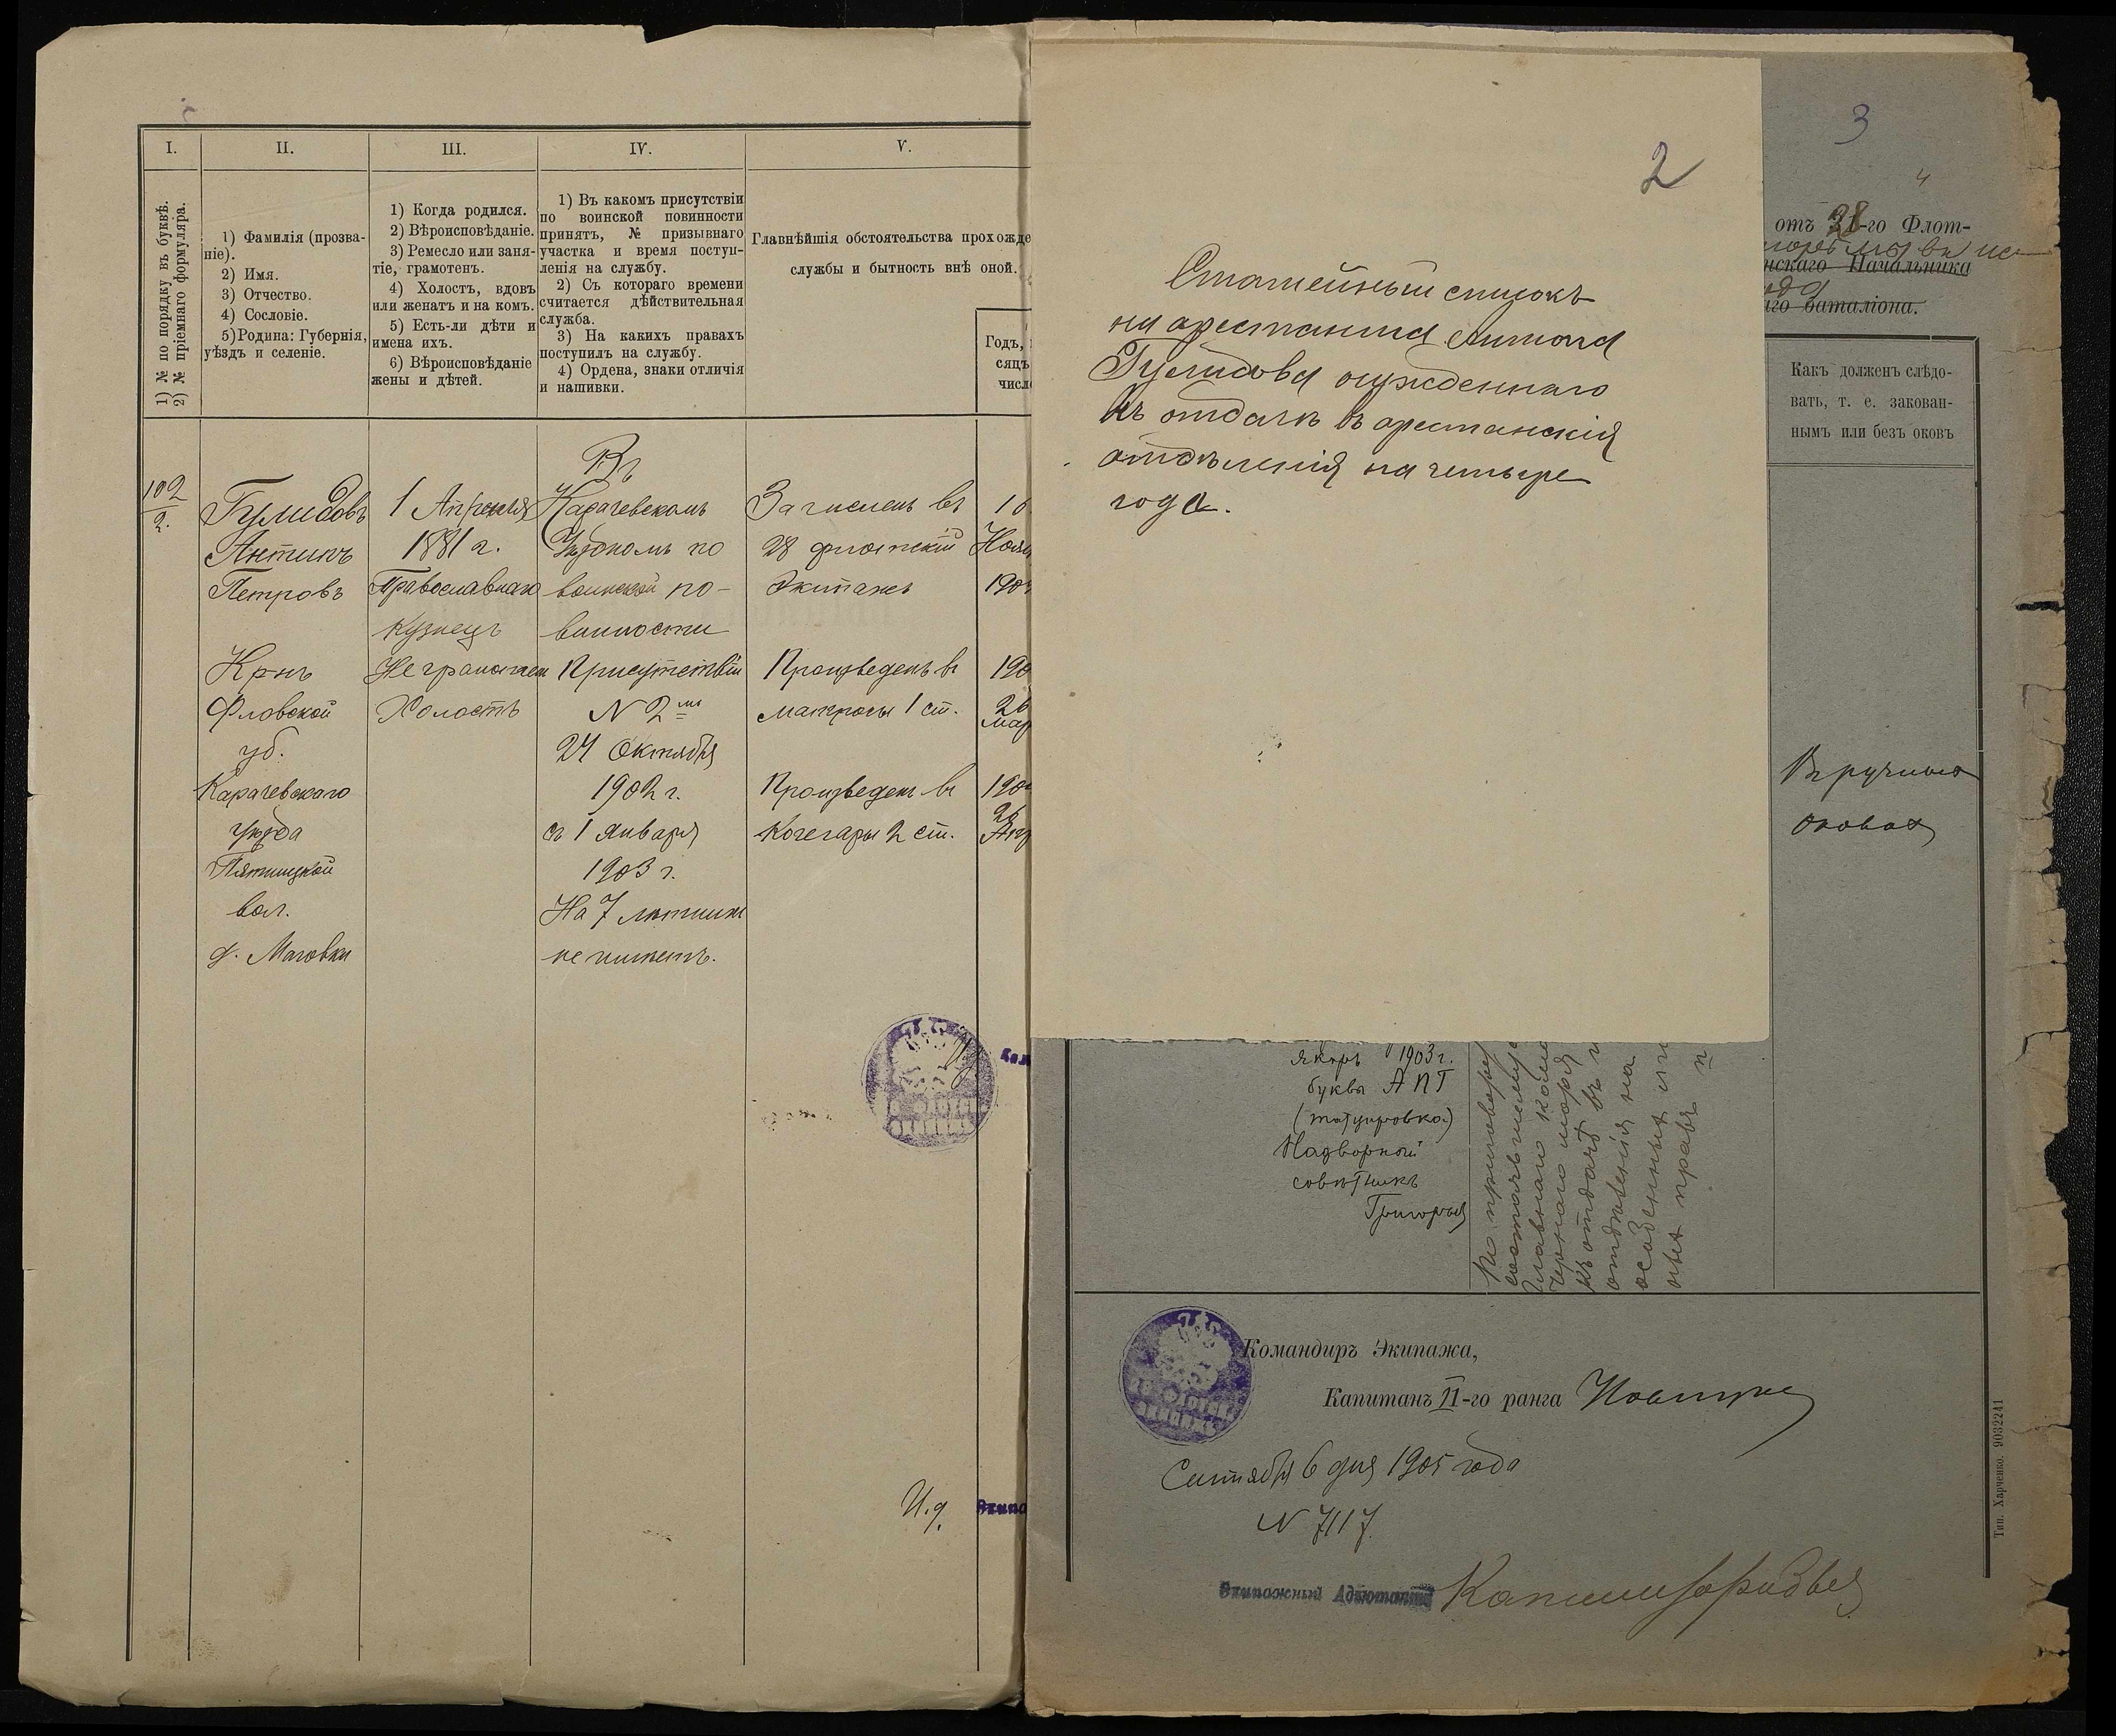 I.
II.
III.
IV.
V.
1) № по порядку въ буквѣ.
2) № пріемнаго формуляра.
1) Фамилія (прозва-
ніе).
2) Имя.
3) Отчество.
4) Сословіе.
5) Родина: Губернія,
уѣздъ и селеніе.
1) Когда родился.
2) Вѣроисповѣданіе.
3) Ремесло или заня-
тіе, грамотенъ.
4) Холостъ, вдовъ
или женатъ и на комъ.
5) Есть-ли дѣти и
имена ихъ.
6) Вѣроисповѣданіе
жены и дѣтей.
1) Въ какомъ присутствіи
по воинской повинности
принятъ, № призывнаго
участка и время поступ-
ленія на службу.
2) Съ котораго времени
считается дѣйствительная
служба.
3) На какихъ правахъ
поступилъ на службу.
4) Ордена, знаки отличія
и нашивки.
Главнѣйшія обстоятельства прохожде
службы и бытность внѣ оной.
Годъ,
сяцъ
числ
102
2.
Гулидовъ
Антипъ
Петровъ
Крнъ
Орловской
губ.
Карачевскаго
уѣзда
Пятницкой
вол.
д.
1 Апрѣля
1881 г.
Православнаго
Кузнецъ
Неграмотенъ
Холостъ
Въ
Карачевскомъ
Уѣздномъ по
воинской по-
винности
Присутствіи
N 2мъ
24 Октября
1902 г.
съ 1 Января
1903 г.
На 7 лѣтнихъ
не имѣетъ.
Зачисленъ въ
28 флотскій
Экипажъ
Произведенъ въ
матросы 1 ст.
Произведенъ въ
Кочегары 2 ст.
190
26
Мар
190
И.д.
2
Статейный списокъ
на арестанта Антипа
Гулидова осужденнаго
къ отдачѣ въ арестанскія
отдѣленія на четыре
года.
3
4
отъ 28-го Флот-
нскаго Начальника
го баталіона.
Какъ долженъ слѣдо-
вать, т. е. закован-
нымъ или безъ оковъ
Въ ручныхъ
оковахъ
якорь 1903 г.
буквы А П Г
(татуировка)
Надворный
совѣтникъ
По приговору
Главнаго
Чернаго моря
къ отдачѣ въ
отдѣленія на
особенныхъ
правъ
Командиръ Экипажа,
Капитанъ II-го ранга
Сентября 6 дня 1905 года
N 7117.
Экипажный Адъютантъ
Тип. Харченко. 9032241